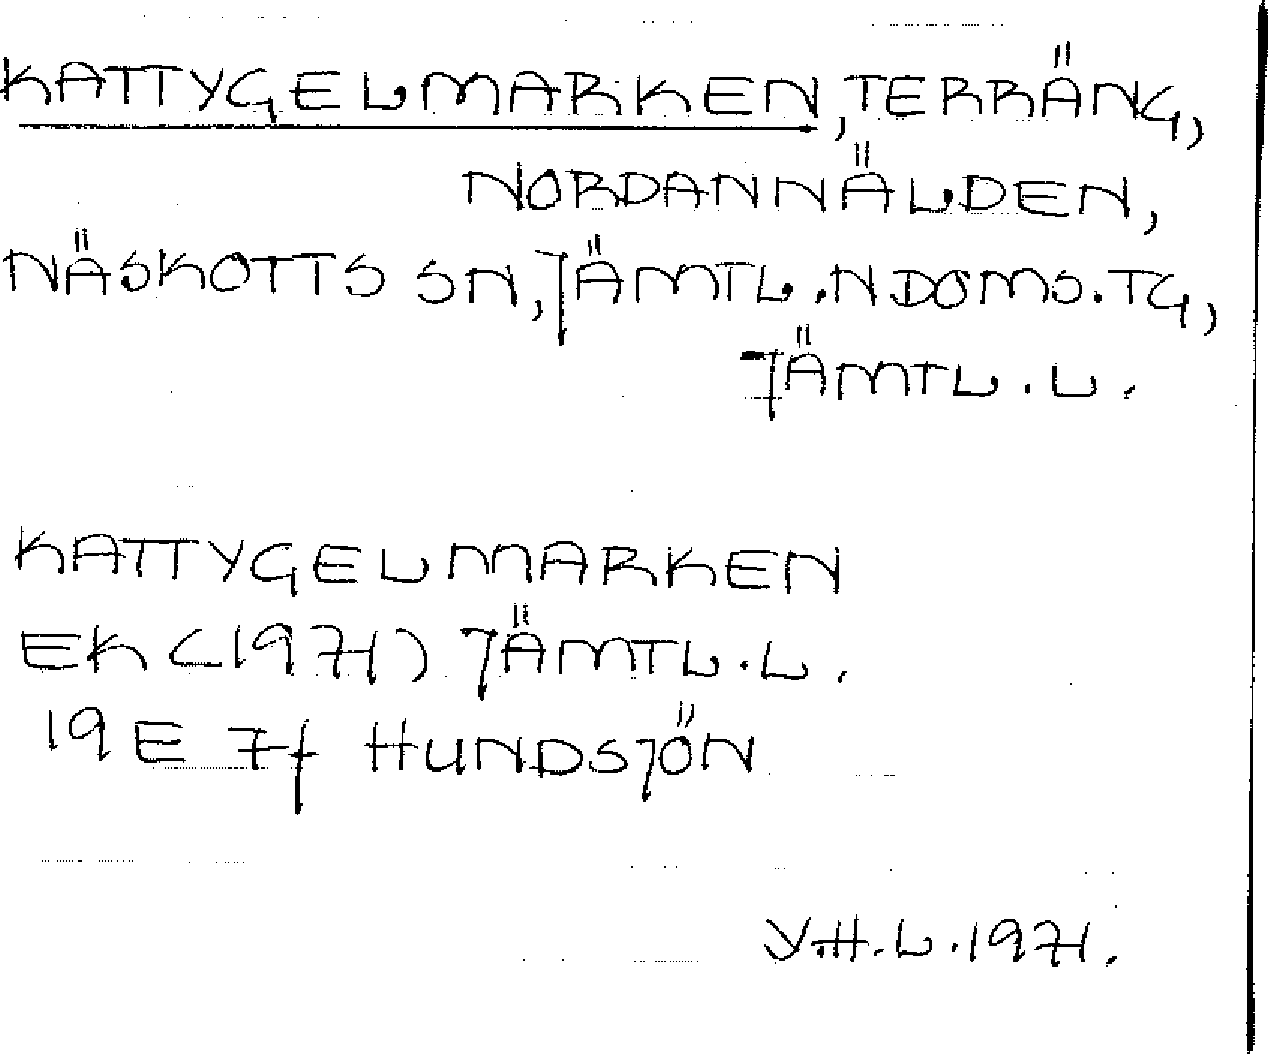 KATTYGELMARKEN, TERRÄNG,
NORDANNÄLDEN,
NÄSKOTTS SN, JÄMTL. N DOMS. TG,
JÄMTL. L.
KATTYGELMARKEN
EK (1971) JÄMTL. L.
19E 7f HUNDSJÖN
Y.H.L. 1971.